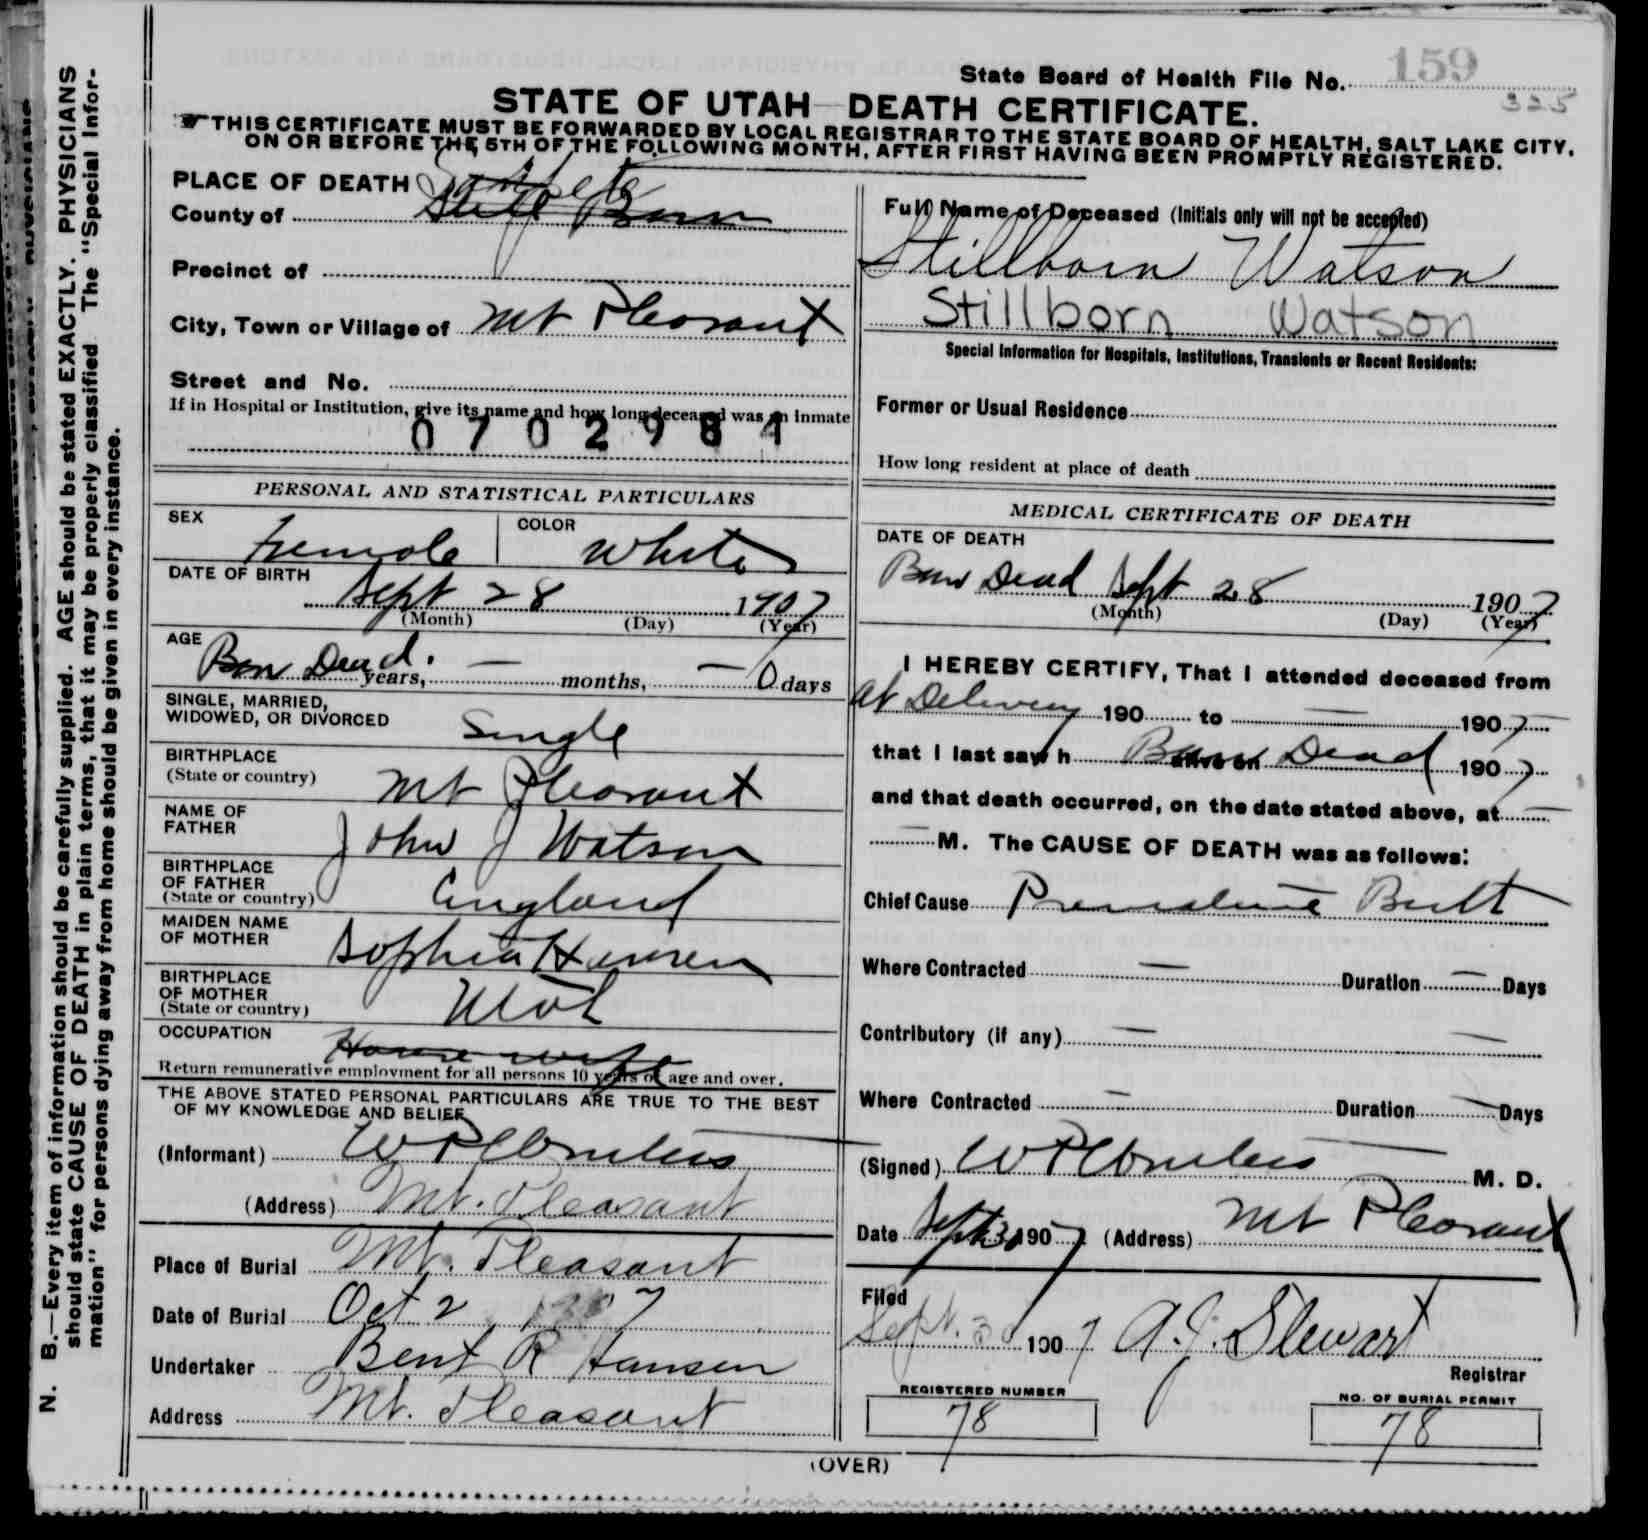 State Board of Health File No. 159
325
STATE OF UTAH—DEATH CERTIFICATE.
THIS CERTIFICATE MUST BE FORWARDED BY LOCAL REGISTRAR TO THE STATE BOARD OF HEALTH, SALT LAKE CITY,
ON OR BEFORE THE 5TH OF THE FOLLOWING MONTH, AFTER FIRST HAVING BEEN PROMPTLY REGISTERED.
PLACE OF DEATH
County of Sanpete
Still Born
Precinct of
City, Town or Village of Mt Pleasant
Street and No.
If in Hospital or Institution, give its name and how long deceased was an inmate
0702984
Full Name of Deceased (Initials only will not be accepted)
Stillborn Watson
Stillborn Watson
Special Information for Hospitals, Institutions, Transients or Recent Residents:
Former or Usual Residence
How long resident at place of death
PERSONAL AND STATISTICAL PARTICULARS
SEX Female COLOR White
DATE OF BIRTH Sept 28 1907
(Month) (Day) (Year)
AGE Born Dead. years, — months, — 0 days
SINGLE, MARRIED,
WIDOWED, OR DIVORCED Single
BIRTHPLACE
(State or country) Mt Pleasant
NAME OF
FATHER John J Watson
BIRTHPLACE
OF FATHER
(State or country) England
MAIDEN NAME
OF MOTHER Sophia Hansen
BIRTHPLACE
OF MOTHER
(State or country) Utah
OCCUPATION House wife
Return remunerative employment for all persons 10 years of age and over.
THE ABOVE STATED PERSONAL PARTICULARS ARE TRUE TO THE BEST
OF MY KNOWLEDGE AND BELIEF
(Informant) W P
(Address) Mt. Pleasant
Place of Burial Mt. Pleasant
Date of Burial Oct 2 1907
Undertaker Bent R Hansen
Address Mt. Pleasant
MEDICAL CERTIFICATE OF DEATH
DATE OF DEATH
Born Dead Sept 28 1907
(Month) (Day) (Year)
I HEREBY CERTIFY, That I attended deceased from
at Delivery 190 to — 1907
that I last saw h alive on Born Dead 1907
and that death occurred, on the date stated above, at —
— M. The CAUSE OF DEATH was as follows:
Chief Cause Premature Birth
Where Contracted — Duration — Days
Contributory (if any) — —
Where Contracted — Duration — Days
(Signed) W P M. D.
Date Sept 30 1907 (Address) Mt Pleasant
Filed
Sept. 30 1907 A. J. Stewart
Registrar
REGISTERED NUMBER
78
NO. OF BURIAL PERMIT
78
(OVER)
N. B.—Every item of information should be carefully supplied. AGE should be stated EXACTLY. PHYSICIANS
should state CAUSE OF DEATH in plain terms, that it may be properly classified The "Special Infor-
mation" for persons dying away from home should be given in every instance.